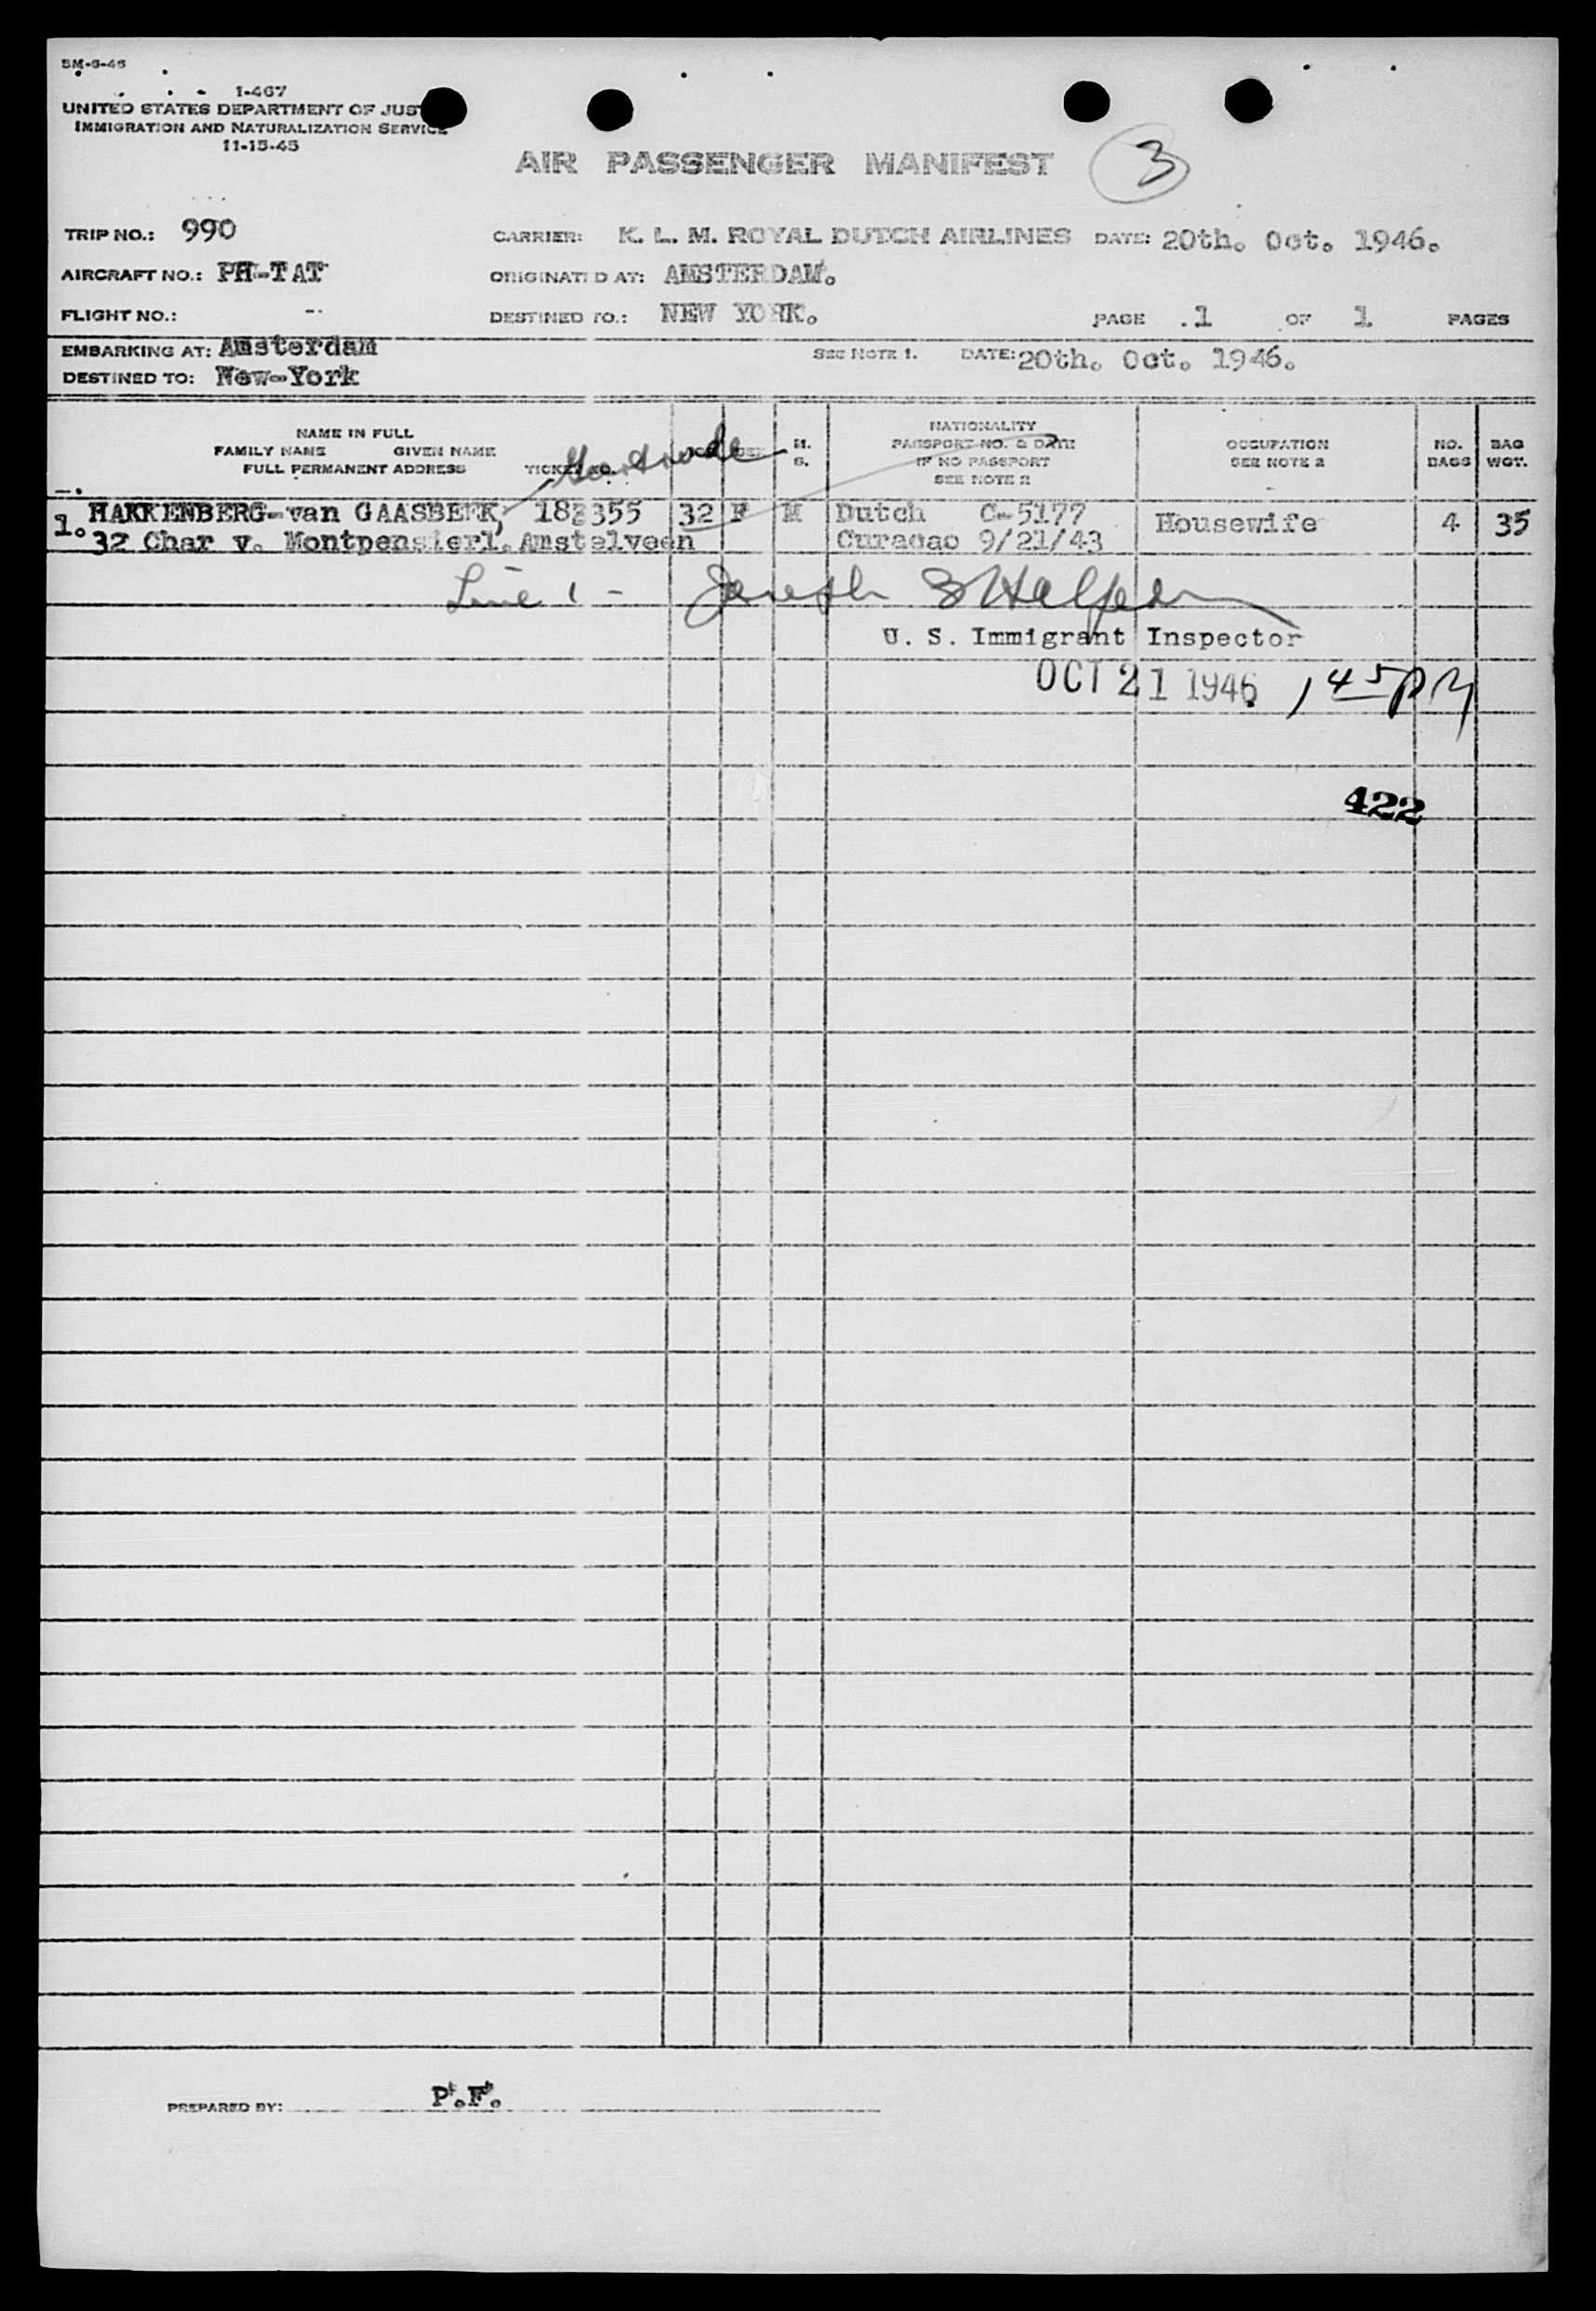 BM-6-46
I-467
UNITED STATES DEPARTMENT OF JUS
IMMIGRATION AND NATURALIZATION SERVICE
11-15-45
AIR PASSENGER MANIFEST 3
TRIP NO.: 990 CARRIER: K. L. M. ROYAL DUTCH AIRLINES DATE: 20th. Oct. 1946.
AIRCRAFT NO.: PH-TAT ORIGINATED AT: AMSTERDAM.
FLIGHT NO.: -- DESTINED TO.: NEW YORK. PAGE .1 OF 1 PAGES
EMBARKING AT: Amsterdam SEE NOTE 1. DATE: 20th. Oct. 1946.
DESTINED TO: New-York
NAME IN FULL
FAMILY NAME GIVEN NAME
FULL PERMANENT ADDRESS TICKET NO. SEX M. S. NATIONALITY PASSPORT NO. & DATE IF NO PASSPORT SEE NOTE 2 OCCUPATION SEE NOTE 2 NO. BAGS BAG WGT.
Gertrude
1. HAKKENBERG-van GAASBEEK, 183355 32 F M Dutch C-5177 Housewife 4 35
32 Char v. Montpensierl. Amstelveen Curacao 9/21/43
Line 1 - Joseph S Halpern
U. S. Immigrant Inspector
OCT 21 1946 1 45 PM
422
PREPARED BY: P.F.